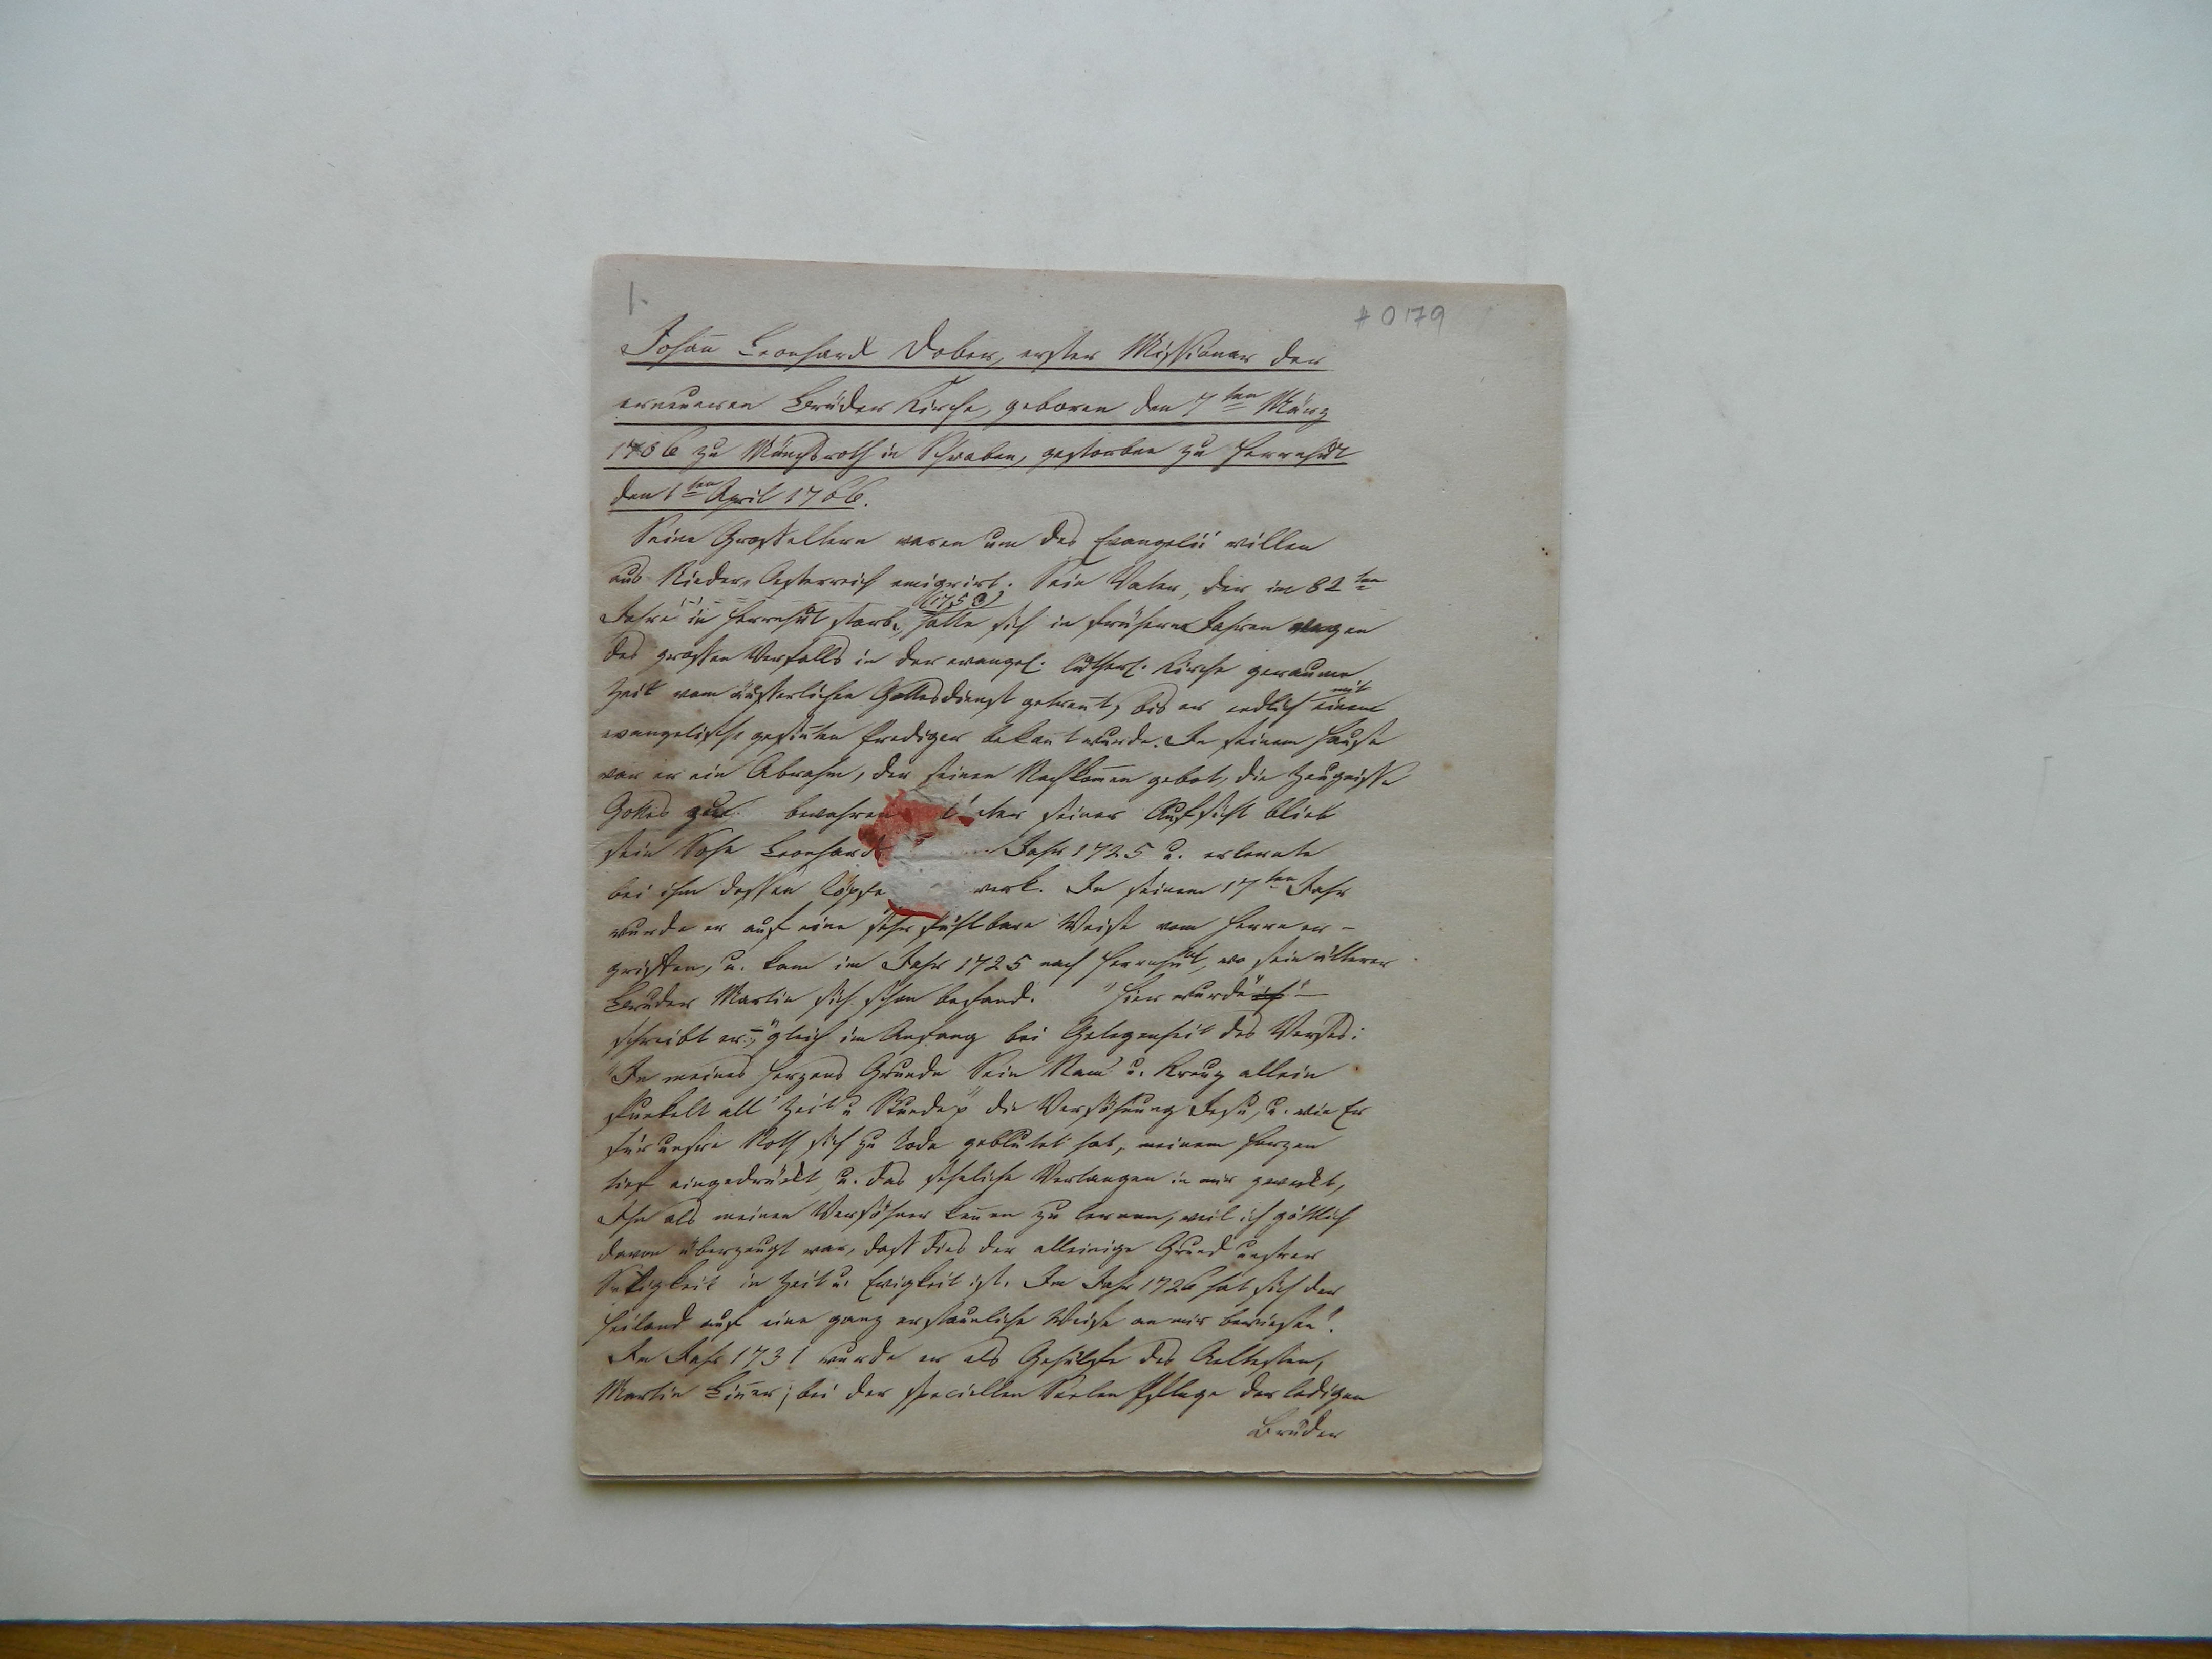 1.
# 0179
Johan̅ Leonhard Dober, erster Missionar der
erneuerten Brüder Kirche, geboren den 7ten März
1706 zu Mönchsroth in Schwaben, gestorben zu Herrnhut
den 1ten April 1766.
Seine Grosseltern waren um des Evangelii willen
aus Nieder-Oesterreich emigrirt. Sein Vater, der im 82ten
(1750)
Jahre in Herrnhut starb, hatte sich in frühern Jahren wegen
des grossen Verfalls in der evangel: luther: Kirche geraume
Zeit vom äusserlichen Gottesdienst getren̅t, bis er endlich mit einem
evangelisch gesin̅ten Prediger bekan̅t wurde. In seinem Hause
war er ein Abrahm, der seinen Nachkom̅en gebot, die Zeugnisse
Gottes zu bewahren seiner Aufsicht blieb
sein Sohn Leonhard Jahr 1725 u. erlernte
bei ihm dessen Töpfe werk. In seinem 17ten Jahr
wurde er auf eine sehr fühlbare Weise vom Herrn er-
griffen, u. kam im Jahr 1725 nach Herrnhut, wo sein älterer
Bruder Martin sich schon befand. "Hier wurde" –
schreibt er – "gleich im Anfang bei Gelegenheit des Verses:
"In meines Herzens Grunde Dein Nam' u. Kreuz allein
funkelt all' Zeit u Stunde," die Versöhnung Jesu, u. wie Er
für unsre Noth sich zu Tode geblutet hat, meinem Herzen
tief eingedrückt, u. das sehnliche Verlangen in mir gewekt,
Ihn als meinen Versöhner ken̅en zu lernen, weil ich göttlich
davon überzeugt war, dass dies der alleinige Grund unsrer
Seligkeit in Zeit u. Ewigkeit ist. Im Jahr 1726 hat sich der
Heiland auf eine ganz erstaunliche Weise an mir bewiesen".
Im Jahr 1731 wurde er als Gehülfe des Aeltesten,
Martin Lin̅er, bei der speciellen Seelen Pflege der ledigen
Brüder